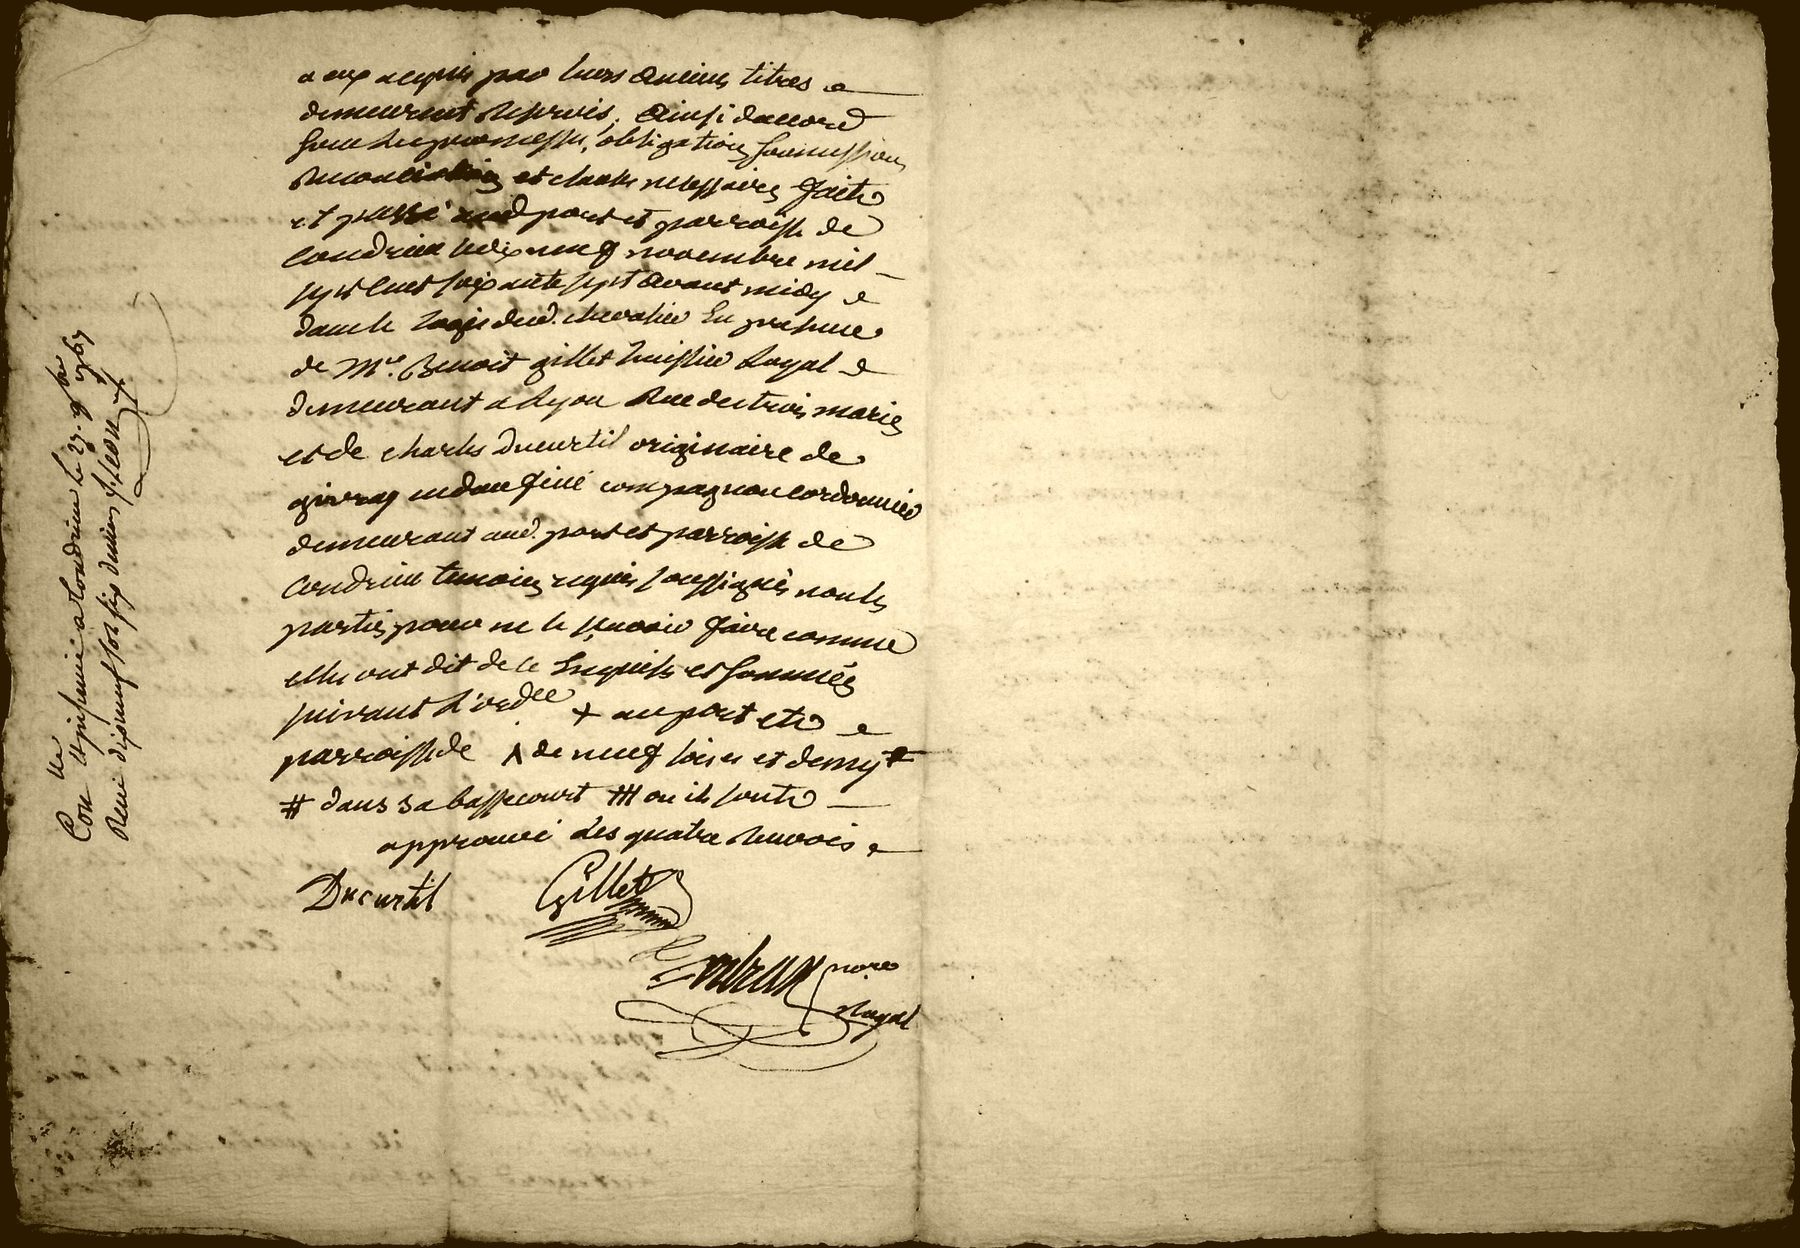 a eux acquis par leurs anciens titres
demeurent reservés. Ainsi daccord
sous les promesses, obligations, soumissions
renonciations et clauses necessaires fait
et passé aud port et parroisse de
Condrieu le dix neuf novembre mil
sept cent soixante sept avant midy
dans le logis dud. chevalier En presence
de Me. Benoit gillet huissier Royal
demeurant a Lyon Rue des trois maries
et de charles Ducurtil originaire de
en dauphiné compagnon cordonnier
demeurant aud. port et parroisse de
Condrieu temoins requis soussignés non les
parties pour ne le scavoir faire comme
elles ont dit de ce Enquises et sommées
suivant L'ordce + au port et
parroisse de Λ de neuf et demy
# dans sa bassecourt ### ou ils sont
approuvé les quatre renvois
Ducurtil Gillet
nore
Royal
Con lle et insinué a Condrieu le 27. 9bre 1767
Reçu dixneuf sols six deniers